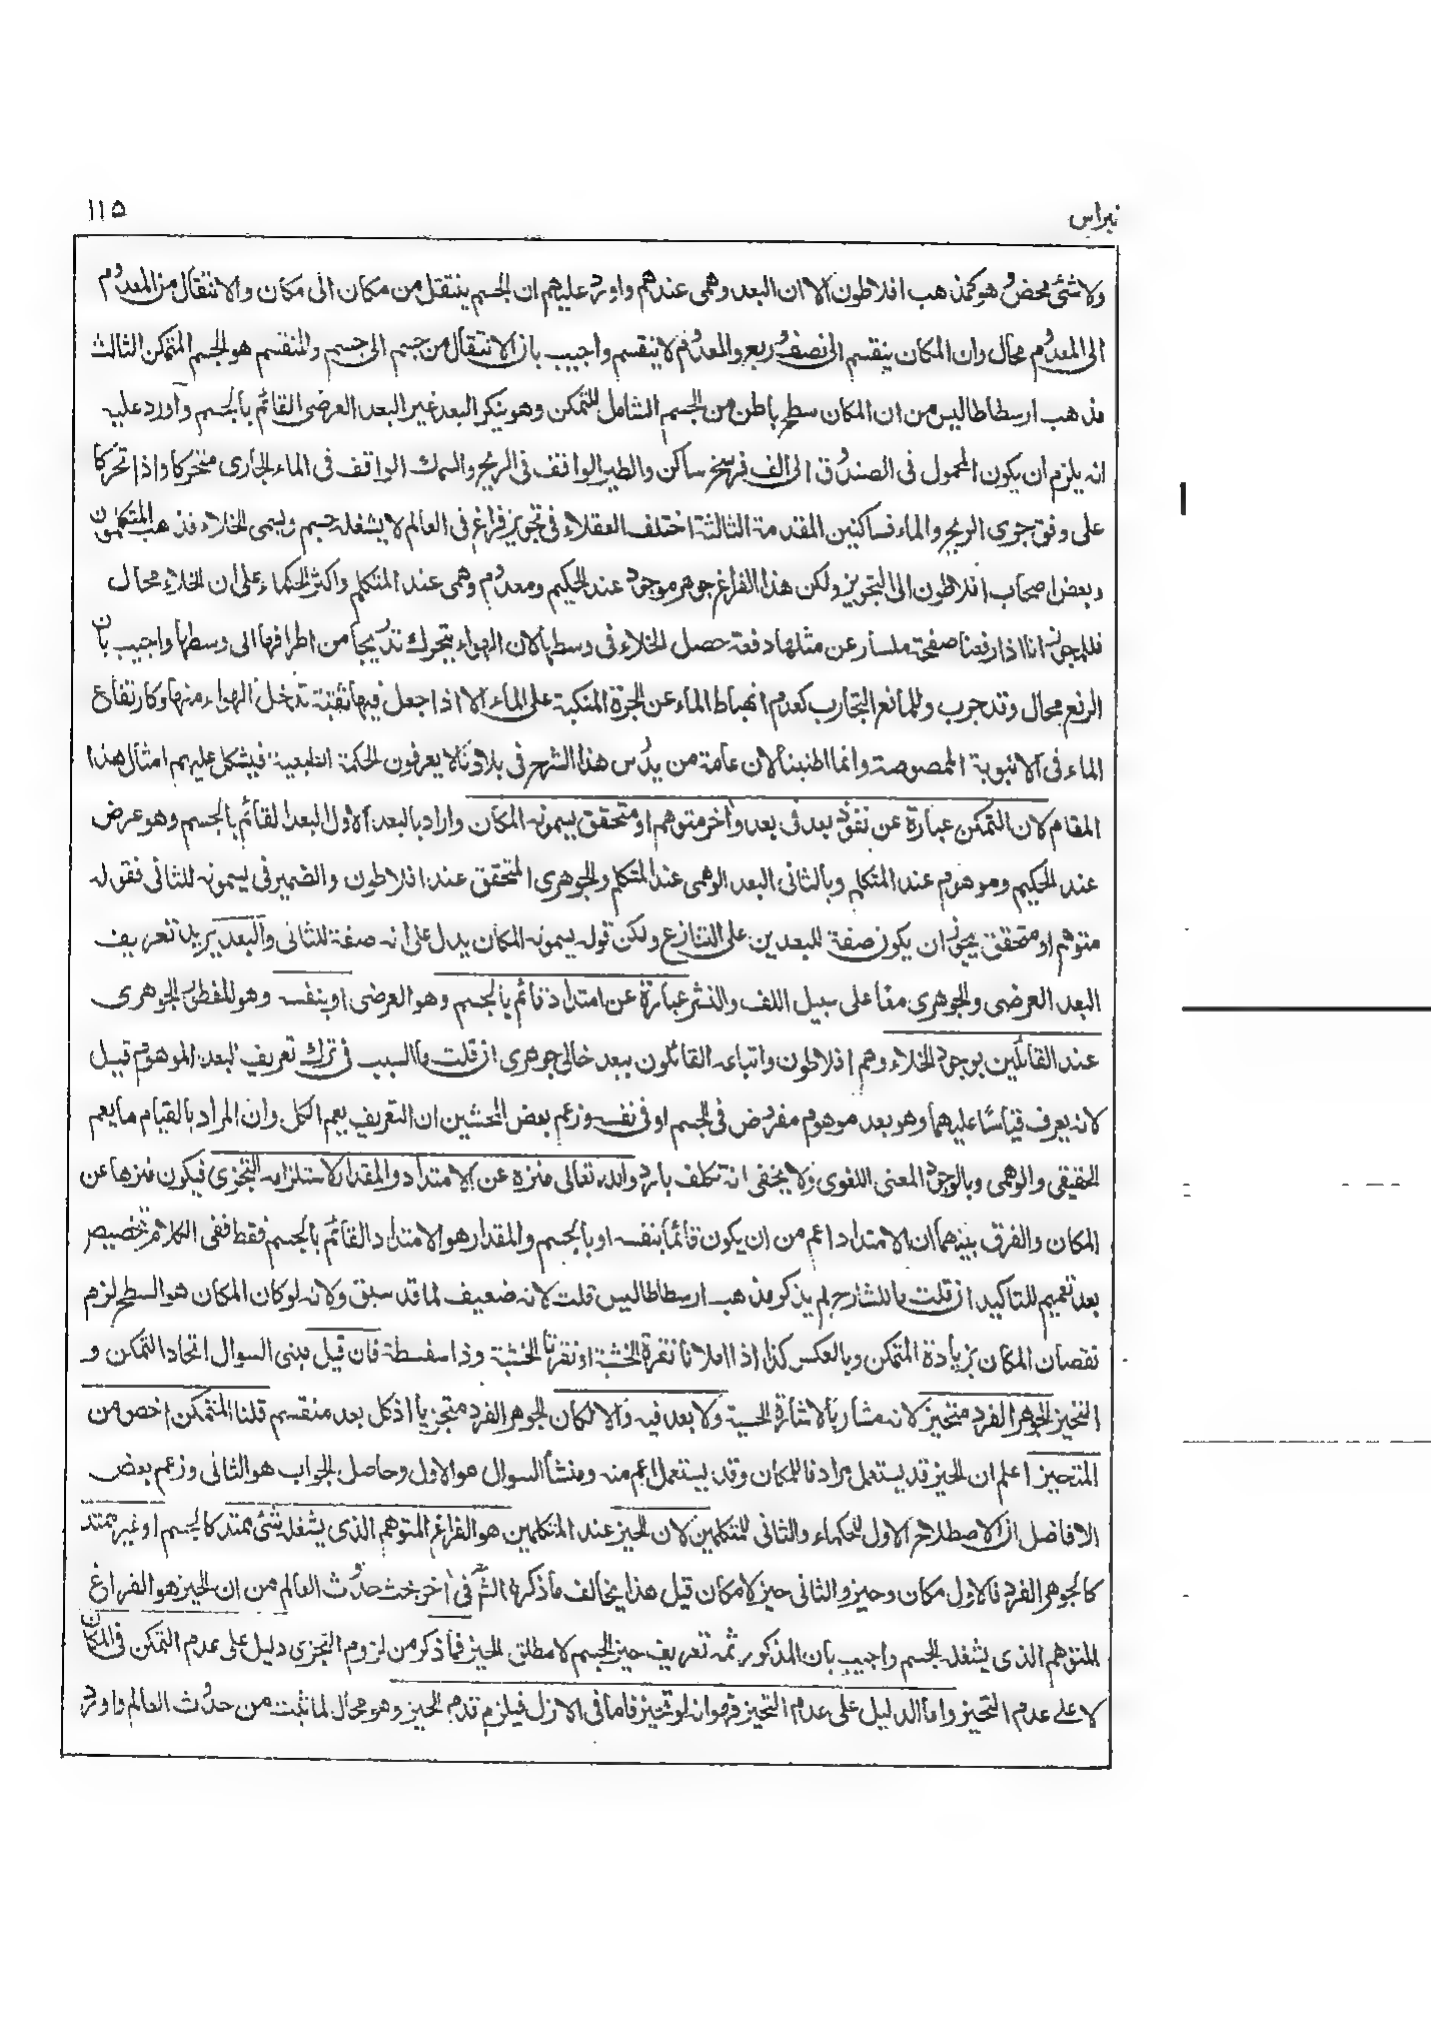 نبراس
١١٥
ولا شئ محض وهو كمذهب افلاطون الا ان البعد وهمى عندهم واورد عليهم ان الجسم ينتقل من مكان الى مكان والانتقال من المعدوم
الى المعدوم محال وان المكان ينقسم الى نصف وربع والمعدوم لا ينقسم واجيب بان الانتقال من جسم الى جسم والمنقسم هو الجسم المتمكن الثالث
مذهب ارسطاطاليس من ان المكان سطح باطن من الجسم الشامل للمتمكن وهو ينكر البعد غير البعد العرضى القائم بالجسم وآورد عليه
انه يلزم ان يكون المحمول فى الصندوق الى الف فرسخ ساكن والطير الواقف فى الريح والسمك الواقف فى الماء الجارى متحركا واذا تحركا
على وفق جرى الريح والماء فساكنين المقدمة الثالثة اختلف العقلاء فى تجويز فراغ فى العالم لا يشغله جسم ويسمى الخلاء فذهب المتكلمون
وبعض اصحاب افلاطون الى التجويز ولكن هذا الفراغ جوهر موجود عند الحكيم ومعدوم وهمى عند المتكلم واكثر الحكماء على ان الخلاء محال
فللمجوز انا اذا رفعنا صفحة ملساء عن مثلها دفعة حصل الخلاء فى وسطها لان الهواء يتحرك تدريجا من اطرافها الى وسطها واجيب بان
الرفع محال وقد جرب وللمانع التجارب كعدم انهباط الماء عن الجرة المنكبة على الماء الا اذا جعل فيها ثقبة تدخل الهواء منها وكارتفاع
الماء فى الانبوبة الممصوصة وانما اطنبنا لان عامة من يدرس هذا الشرح فى بلادنا لا يعرفون الحكمة الطبعية فيشكل عليهم امثال هذا
المقام لان التمكن عبارة عن نفوذ بعد فى بعد واخر متوهم او متحقق يسمونه المكان واراد بالبعد الاول البعد القائم بالجسم وهو عرض
عند الحكيم وموهوم عند المتكلم وبالثانى البعد الوهمى عند المتكلم والجوهرى المتحقق عند افلاطون والضمير فى يسمونه للثانى فقوله
متوهم او متحقق يجوز ان يكون صفة للبعدين على التنازع ولكن قوله يسمونه المكان يدل على انه صفة للثانى والبعد يريد تعريف
البعد العرضى والجوهرى معا على سبيل اللف والنشر عبارة عن امتداد قائم بالجسم وهو العرضى او بنفسه وهو للفطور الجوهرى
عند القائلين بوجود الخلاء وهم افلاطون واتباعه القائلون ببعد خالى جوهرى ان قلت ما السبب فى ترك تعريف البعد الموهوم قيل
لانه يعرف قياسا عليهما وهو بعد موهوم مفروض فى الجسم او فى نفسه وزعم بعض المحشين ان التعريف يعم الكل وان المراد بالقيام ما يعم
الحقيقى والوهمى وبالوجود المعنى اللغوى ولا يخفى انه تكلف بارد والله تعالى منزه عن الامتداد والمقدار لاستلزامه التجزى فيكون منزها عن
المكان والفرق بينهما ان الامتداد اعم من ان يكون قائما بنفسه او بالجسم والمقدار هو الامتداد القائم بالجسم فقط ففى الكلام تخصيص
بعد تعميم للتاكيد ان قلت ما للشارح لم يذكر مذهب ارسطاطاليس قلت لانه ضعيف لما قد سبق ولانه لو كان المكان هو السطح لزم
نقصان المكان بزيادة المتمكن وبالعكس كذا اذا املانا نقرة الخشبة او نقرنا الخشبة وذا سفسطة فان قيل مبنى السوال اتحاد التمكن و
التحيز الجوهر الفرد متحيز لانه مشار بالاشارة الحسية ولا بعد فيه والا لكان الجوهر الفرد متجزيا اذ كل بعد منقسم قلنا المتمكن اخص من
المتحيز اعلم ان الحيز قد يستعمل مرادفا للمكان وقد يستعمل اعم منه ومنشأ السوال هو الاول وحاصل الجواب هو الثانى وزعم بعض
الافاضل ان الاصطلاح الاول للحكماء والثانى للمتكلمين لان الحيز عند المتكلمين هو الفراغ المتوهم الذى يشغله شئ ممتد كالجسم او غير ممتد
كالجوهر الفرد فالاول مكان وحيز والثانى حيز لا مكان قيل هذا يخالف ما ذكره الش فى اخر بحث حدوث العالم من ان الحيز هو الفراغ
المتوهم الذى يشغله الجسم واجيب بان المذكور ثمه تعريف حيز الجسم لا مطلق الحيز فما ذكر من لزوم التجزى دليل على عدم التمكن فى المكان
لا على عدم التحيز واما الدليل على عدم التحيز فهو انه لو تحيز فاما فى الازل فيلزم قدم الحيز وهو محال لما ثبت من حدوث العالم واورد